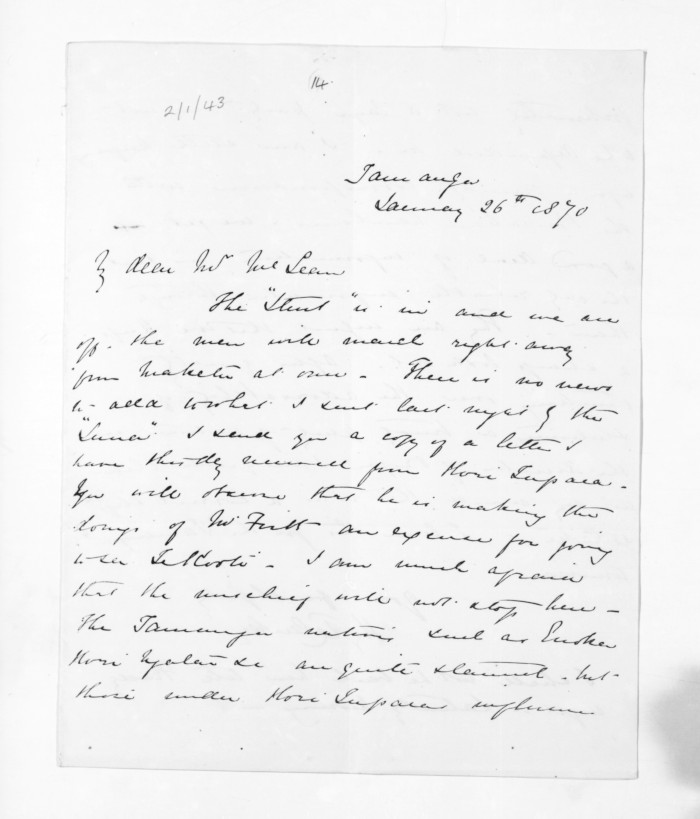 14.
2/1/43
Tauranga
January 26th 1870
My dear Mr McLean
The "Sturt" is in and we are
off. the men will march right away
from Maketu at once - There is no news
to add to what I sent last night by the
"Luna" I send you a copy of a letter I
have this day received from Hori Tupaea -
You will observe that he is making the
doings of Mr Firth an excuse for going
to see Te Kooti - I am much afraid
that the mischief will not stop here -
The Tauranga natives such as Enoka
Hori Ngatai &c are quite staunch - but
those under Hori Tupaea influence